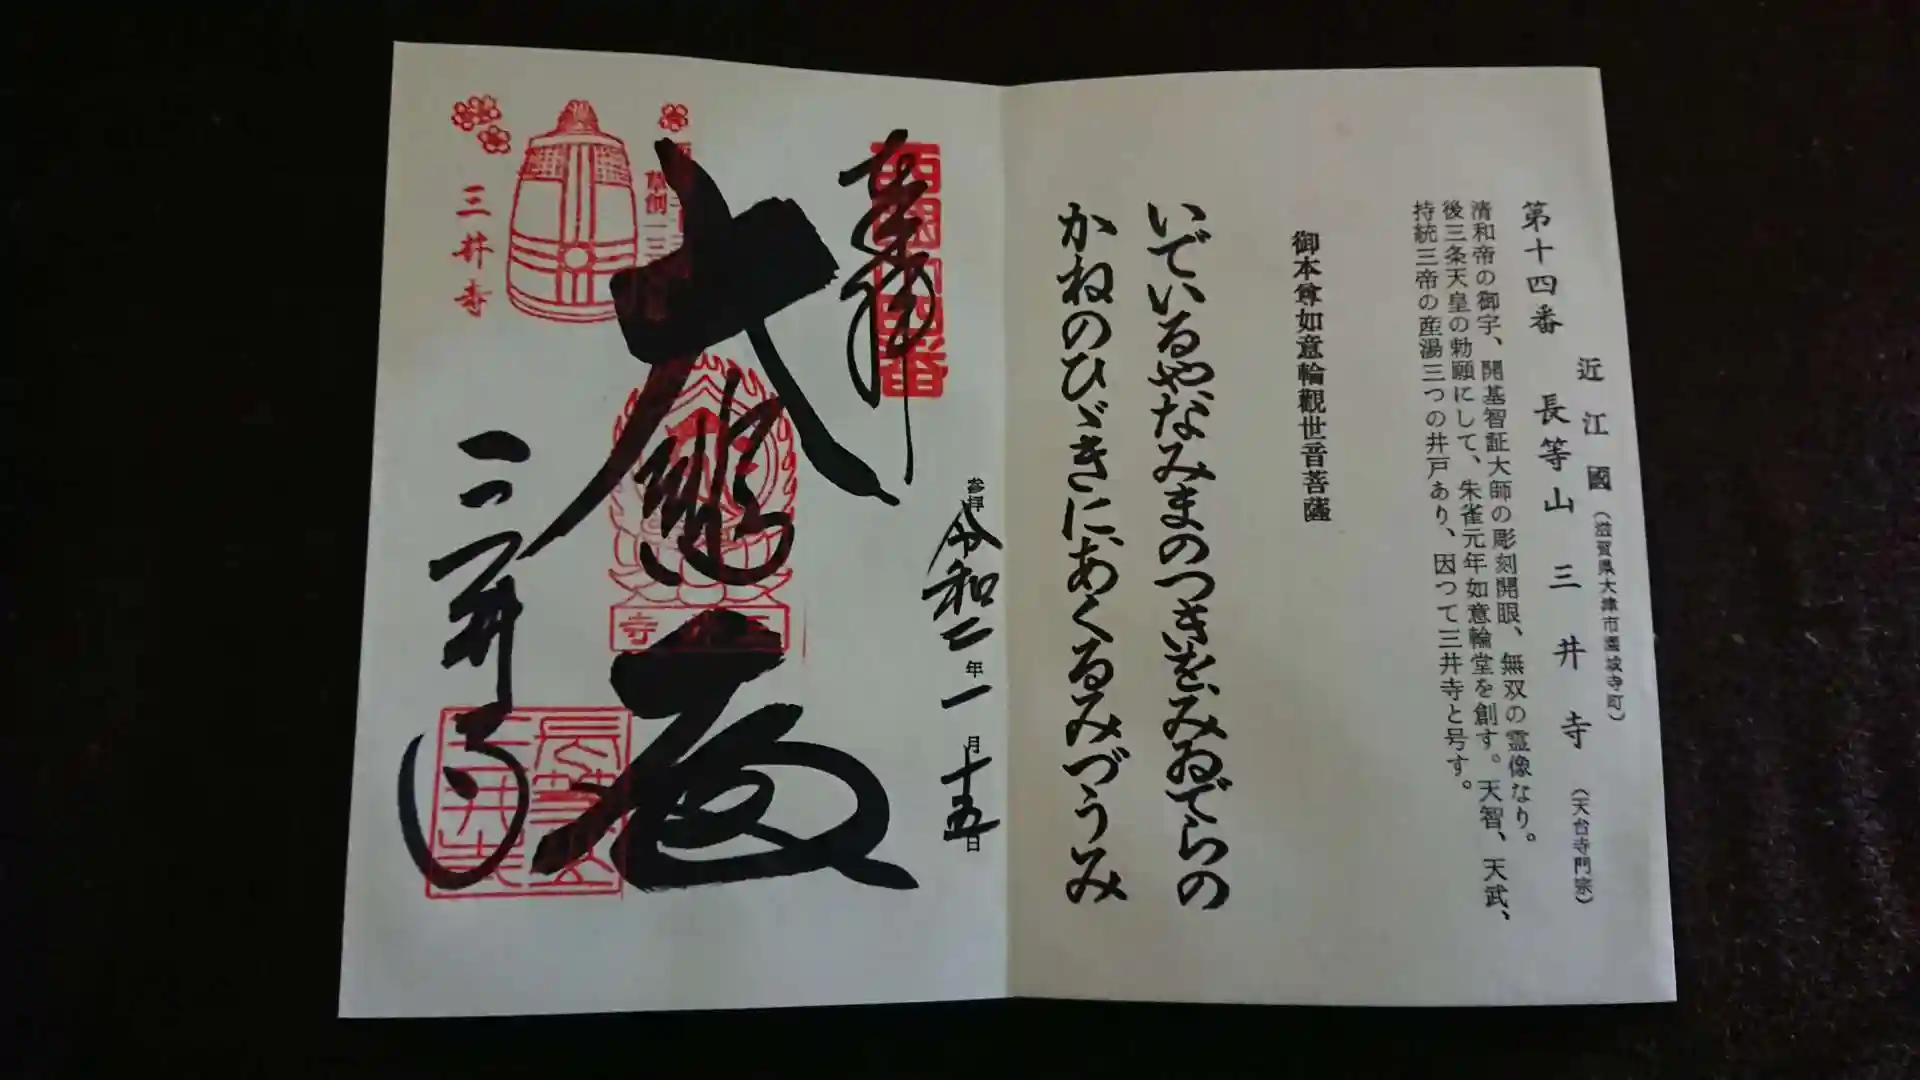 近江國（滋賀県大津市園城寺町）
第十四番 長等山 三井寺（天台寺門宗）
清和帝の御宇、開基智証大師の彫刻開眼、無双の霊像なり。
後三条天皇の勅願にして、朱雀元年如意輪堂を創す。天智、天武、
持統三帝の産湯三つの井戸あり、因つて三井寺と号す。
御本尊如意輪觀世音菩薩
いでいるやなみまのつきをみゐでらの
かねのひゞきにあくるみづうみ
参拝 令和二年一月十五日
奉拝
西国十四番
大悲殿
草創一三
三井寺
三井寺
三井寺